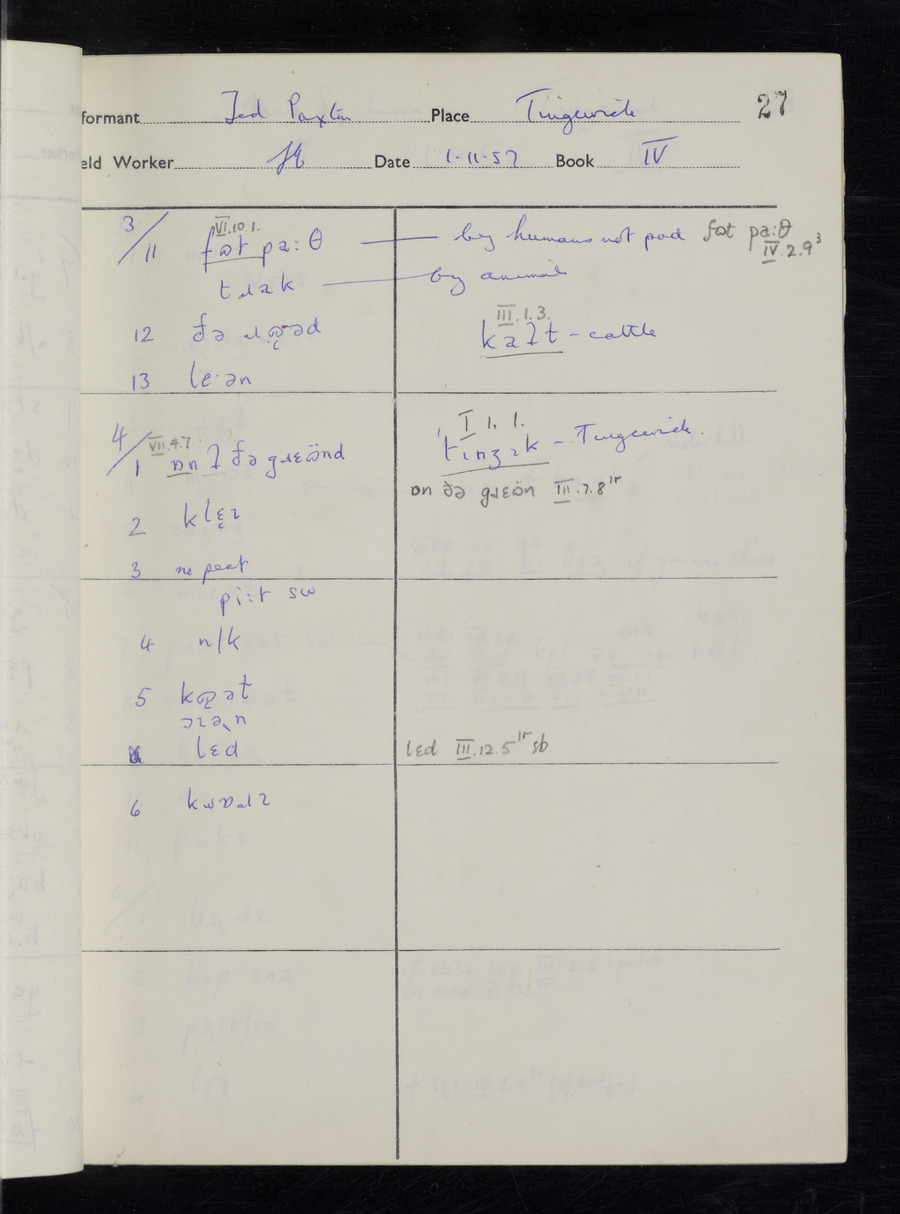 formant Ted Paxton Place Tingewick 27
eld Worker Date 1·11·57 Book IV
3/11 VI.10.1. fɷt pa:θ — by humans not pad fɷt pa:θ IV.2.9³
tɹak — by animal
III.1.3.
12 ðə ɹɷ̜əd kaʔt - cattle
13 le·ən
4/1 VII.4.7 ɒnʔ ðə gɹɛɷ̈nd
I 1. 1.
tɪnʒɪk - Tingewick.
ɒn ðə gɹɛɷ̈n III.7.8 ir
2 klɛ̜ɪ
3 no peat
pi:t sw
4 n/k
5 kɷ̜ət
lɛd lɛd III.12.5 ir sb
6 kwɒɹɪ